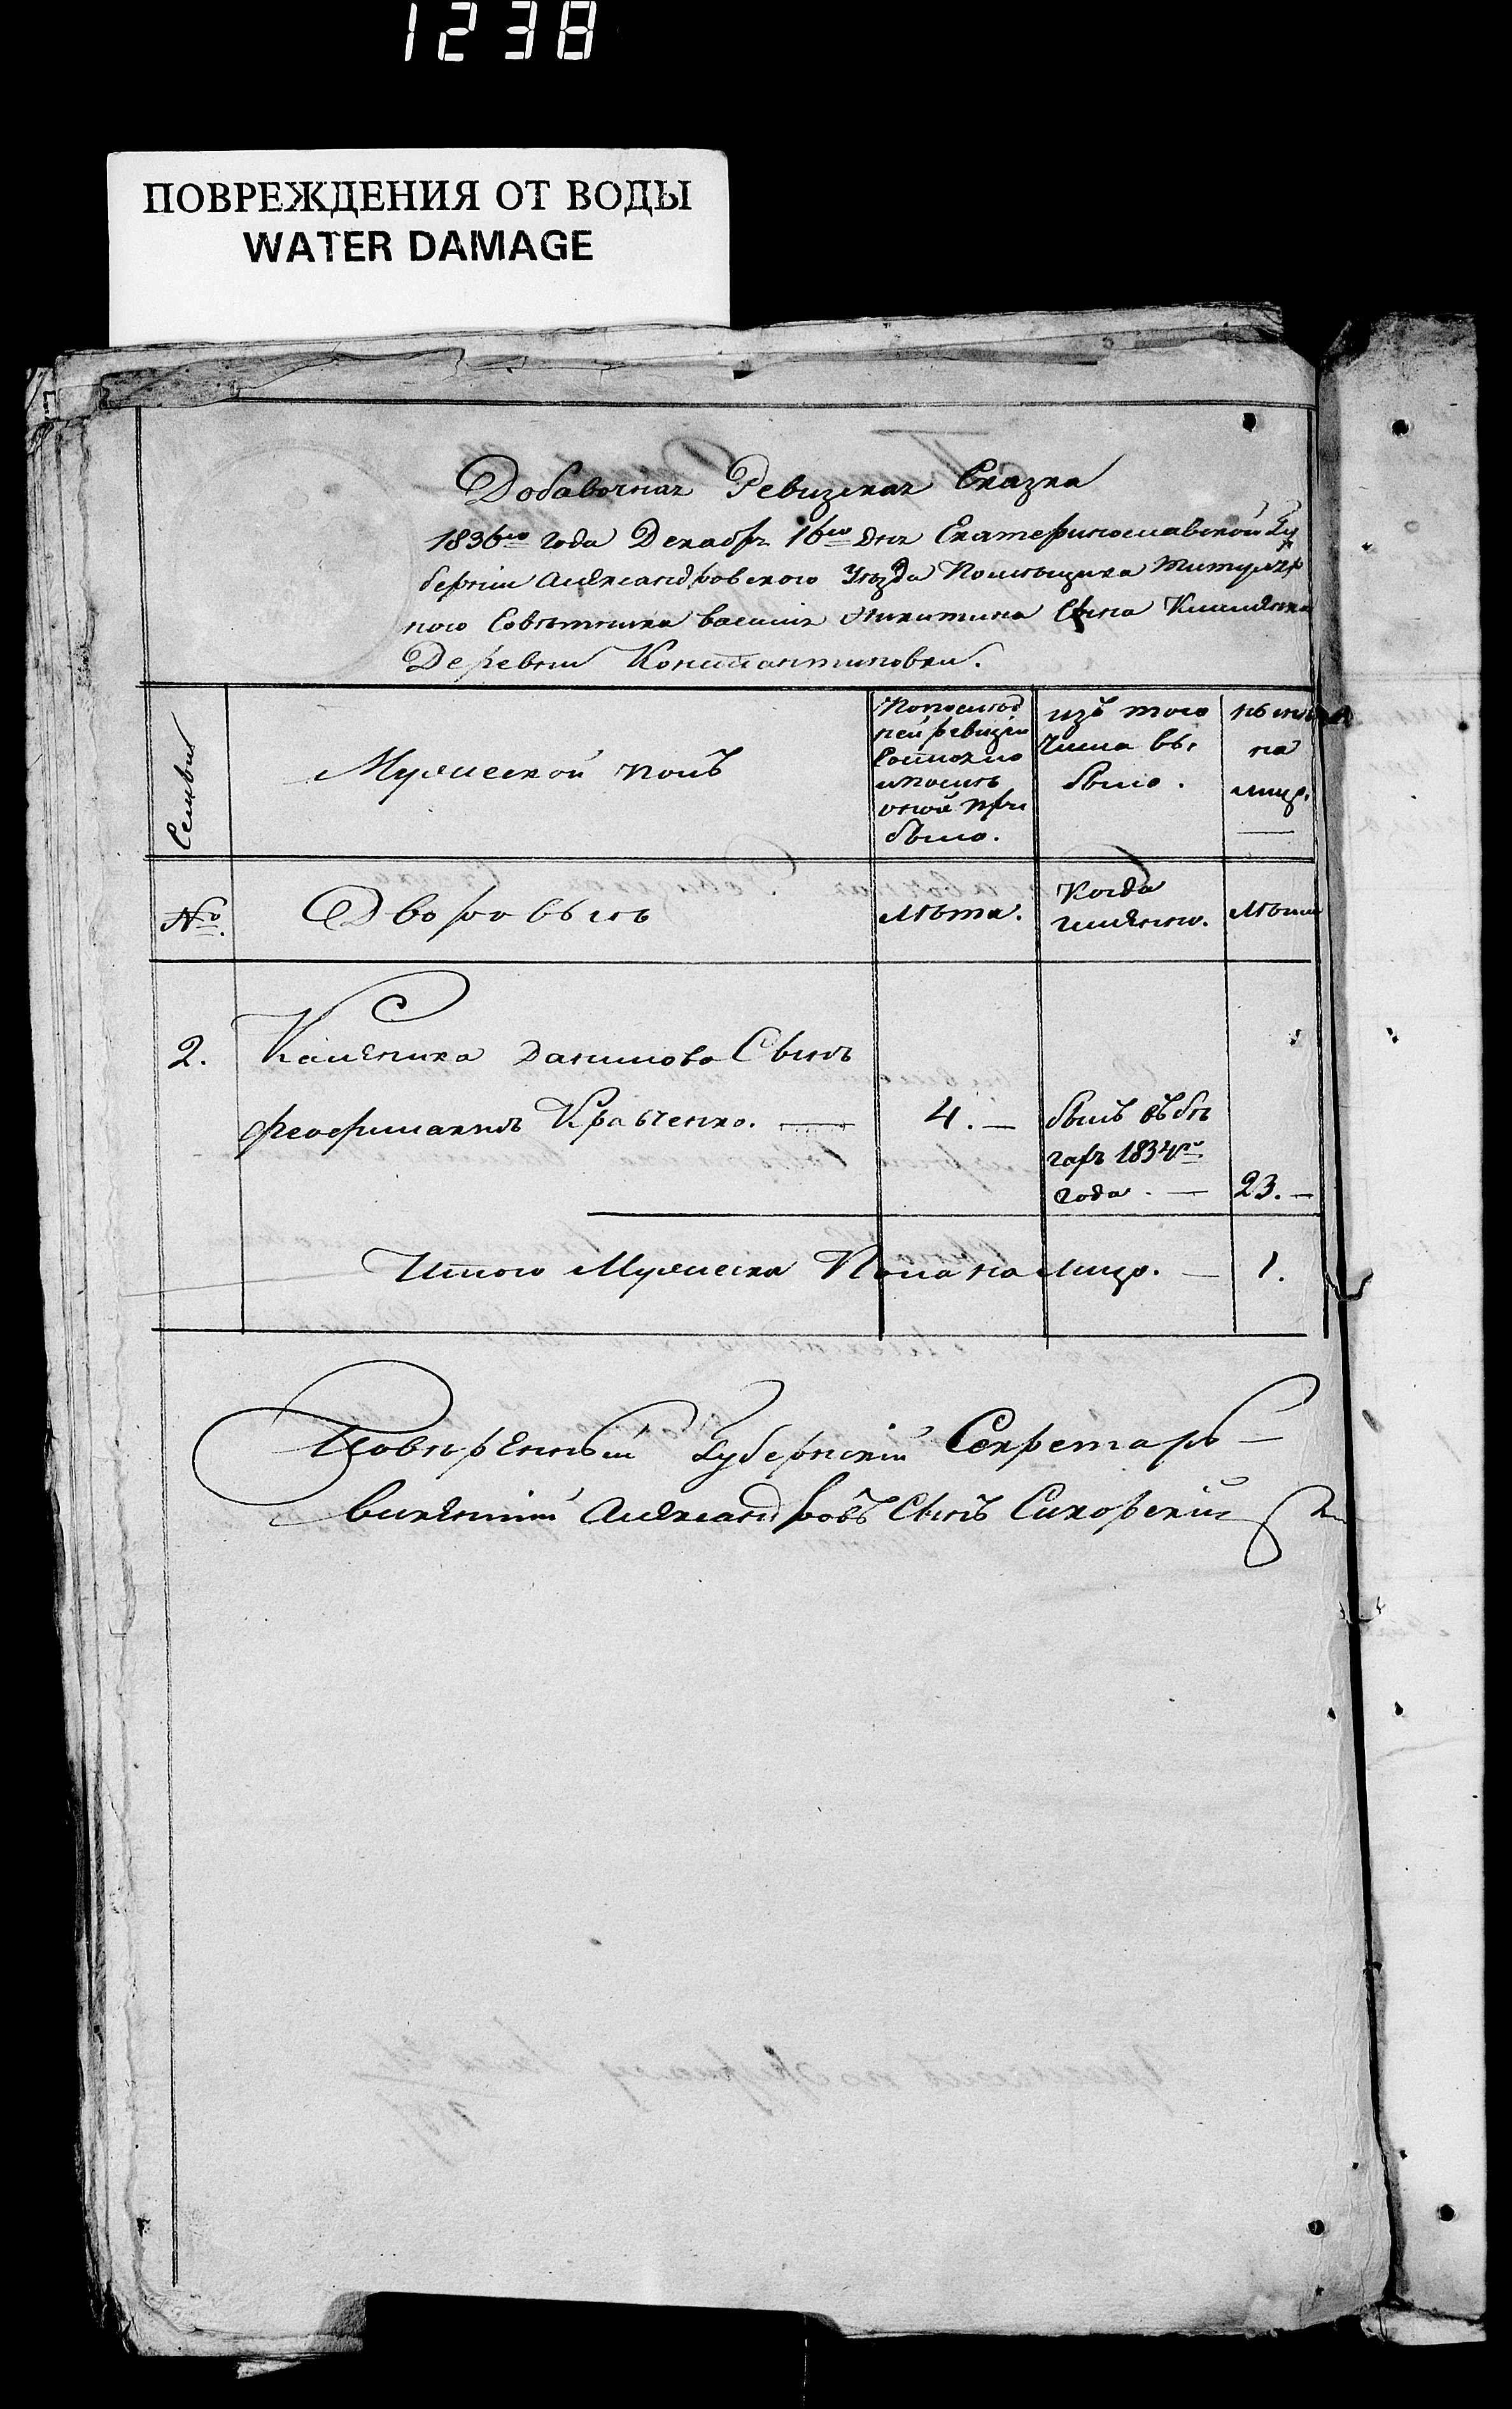 1238
ПОВРЕЖДЕНИЯ ОТ ВОДЫ
WATER DAMAGE
Добавочная Ревизская Сказка
1836го года Декабря 16го дня Екатеринославской Гу
берніи Александровского Уѣзда Помѣщика Титуляр
ного Совѣтника Василія Никитина Сына
Деревни Константиновки.
Семьи
Мужеской полъ
Попослѣд
ней ревизіи
Состояло
ипослѣ
оной при
было.
изъ того
Числа вы,
было.
нынѣ
на
лицо.
№.
Дворовыхъ
Лѣта.
Когда
имянно.
Лѣта
2.
Каленика Данилова Сынъ
Кравченко.
4.
былъ въ бѣ
гахъ 1834го
года.
23.
Итого Мужеска Пола на лицо.
1.
Повѣренный Губернскій Секретарь
Викентій Александровъ Сынъ Сикорскій